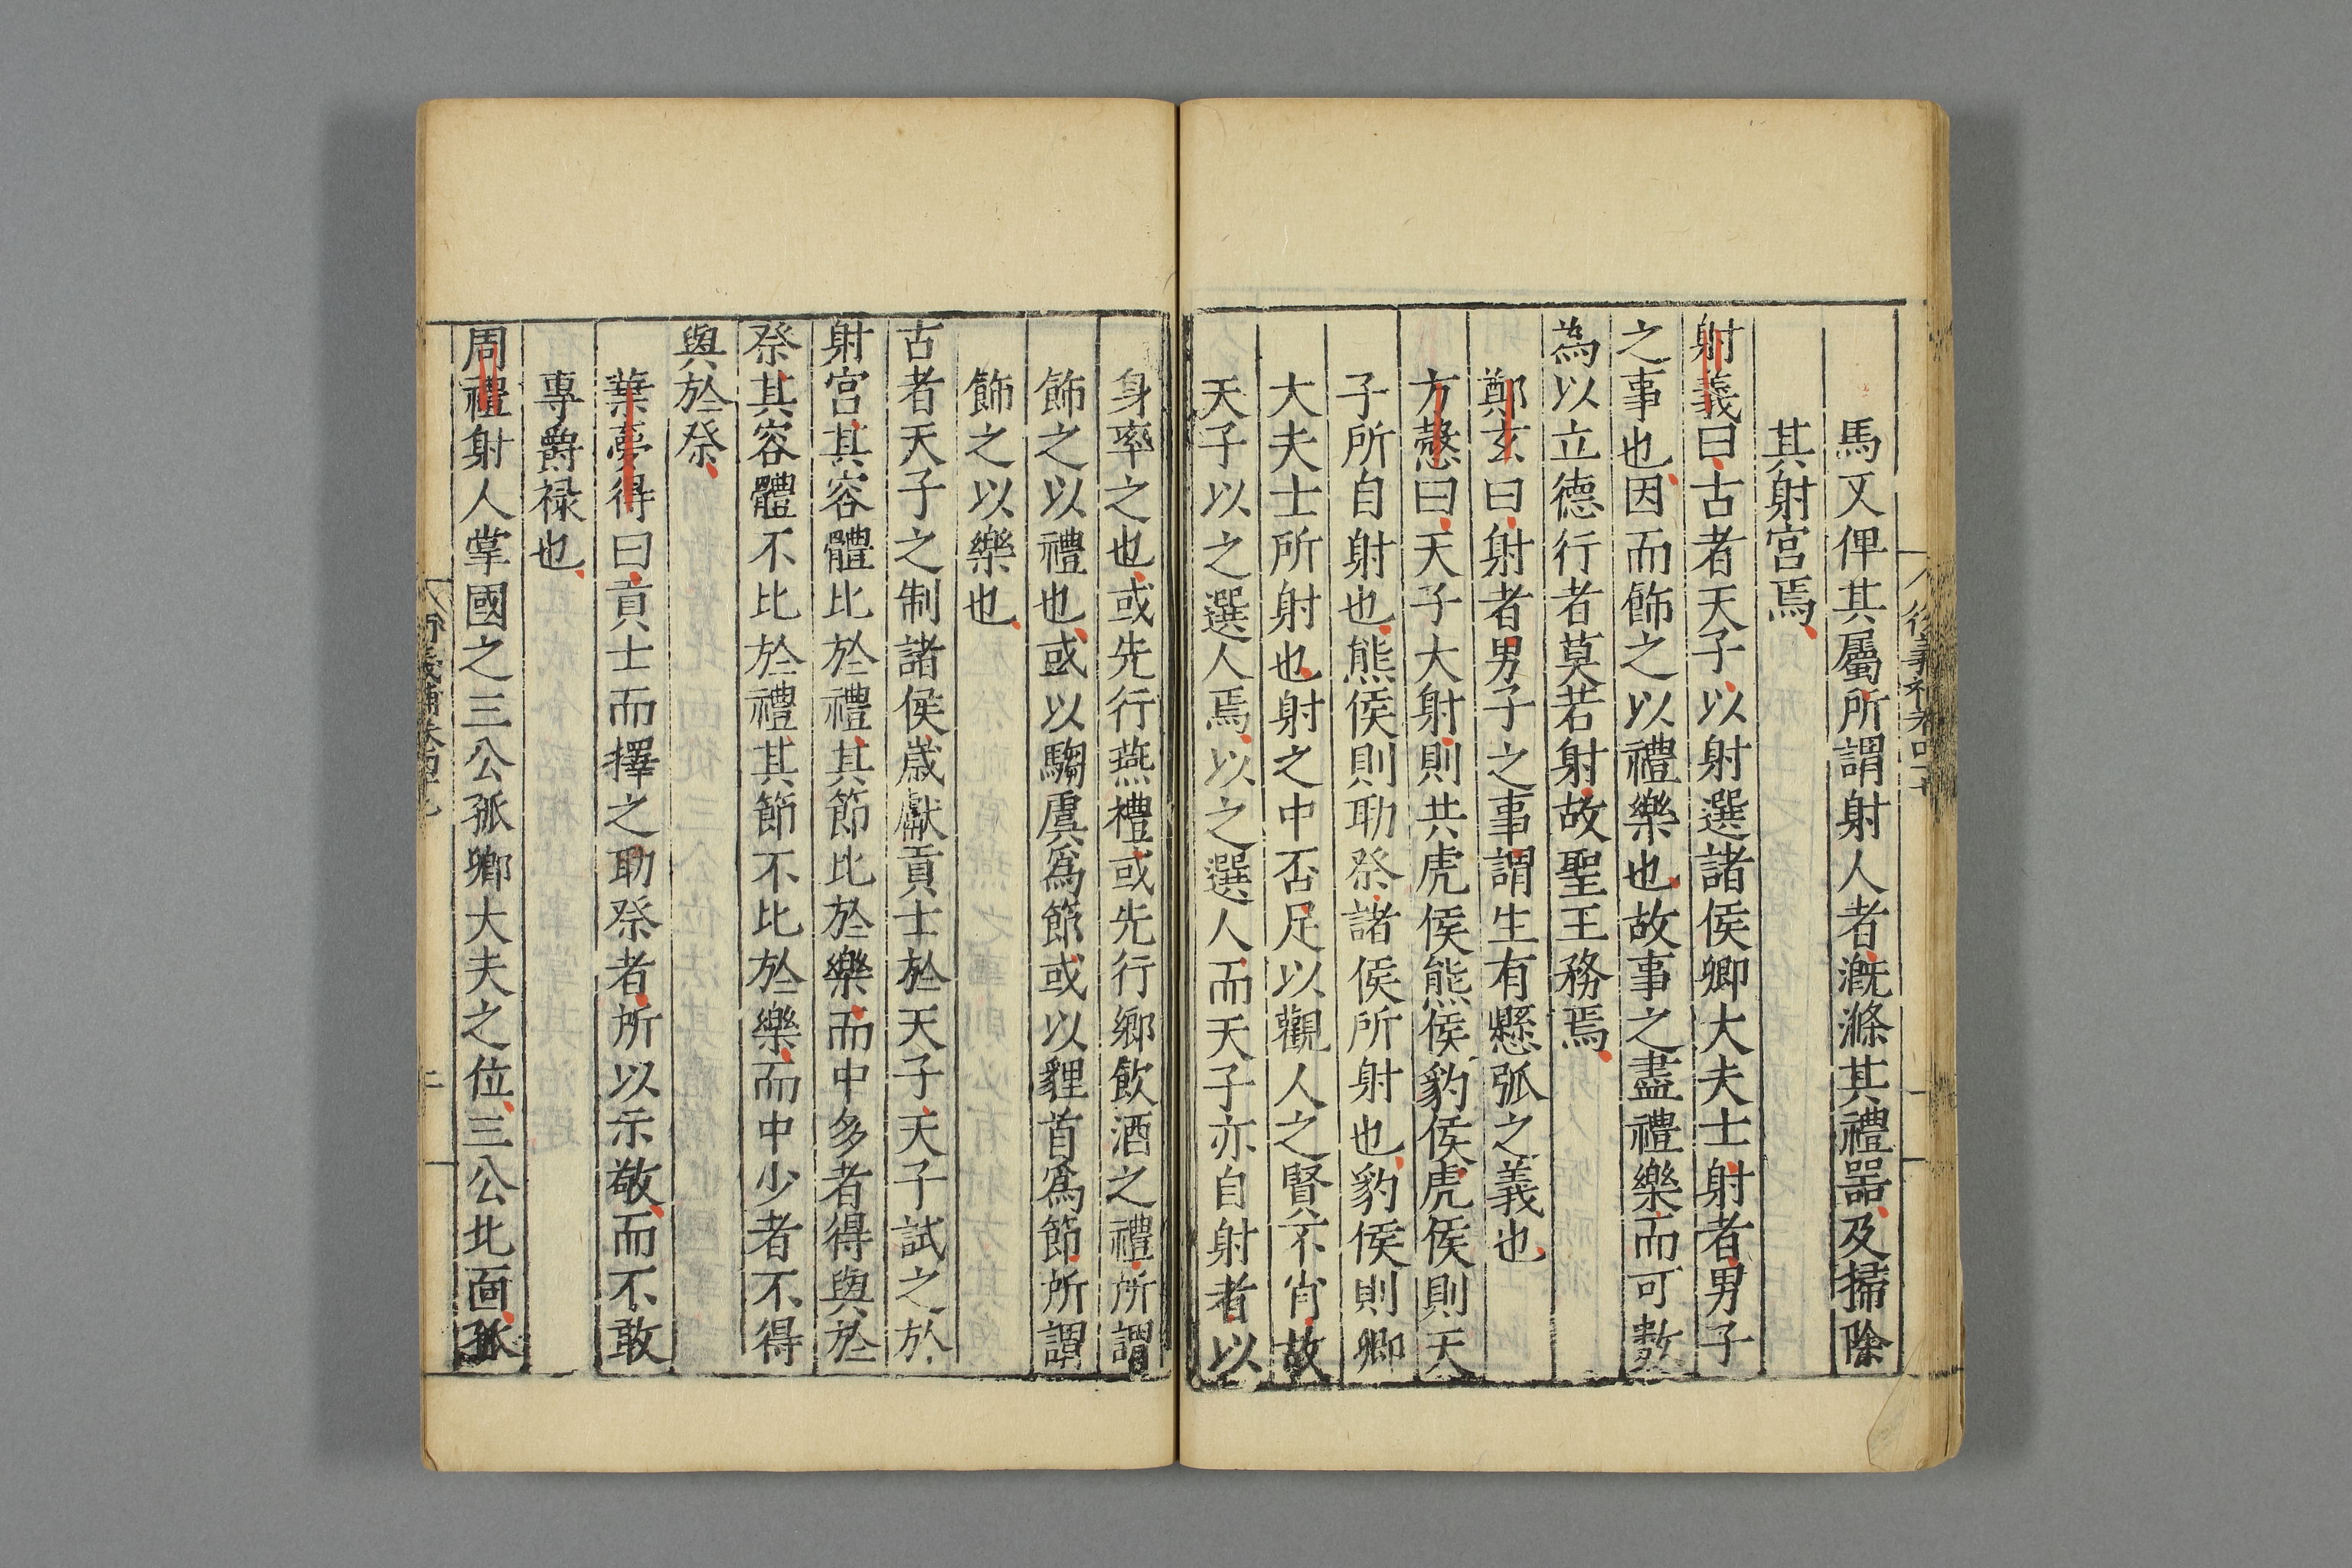 馬又俾其屬所謂射人者漑滌其禮器及掃除
其射宮焉
射義曰古者天子以射選諸侯卿大夫士射者男子
之事也因而飾之以禮樂也故事之盡禮樂而可數
為以立德行者莫若射故聖王務焉
鄭玄曰射者男子之事謂生有懸弧之義也
方慤曰天子大射則共虎侯熊侯豹侯虎侯則天
子所自射也熊侯則助祭諸侯所射也豹侯則卿
大夫士所射也射之中否足以觀人之賢不肖故
天子以之選人焉以之選人而天子亦自射者以
身率之也或先行燕禮或先行鄉飲酒之禮所謂
飾之以禮也或以騶虞爲節或以貍首爲節所謂
飾之以樂也
古者天子之制諸侯歳獻貢士於天子天子試之於
射宮其容體比於禮其節比於樂而中多者得與於
祭其容體不比於禮其節不比於樂而中少者不得
與於祭
葉夢得曰貢士而擇之助祭者所以示敬而不敢
專爵禄也
周禮射人掌國之三公孤卿大夫之位三公北面孤